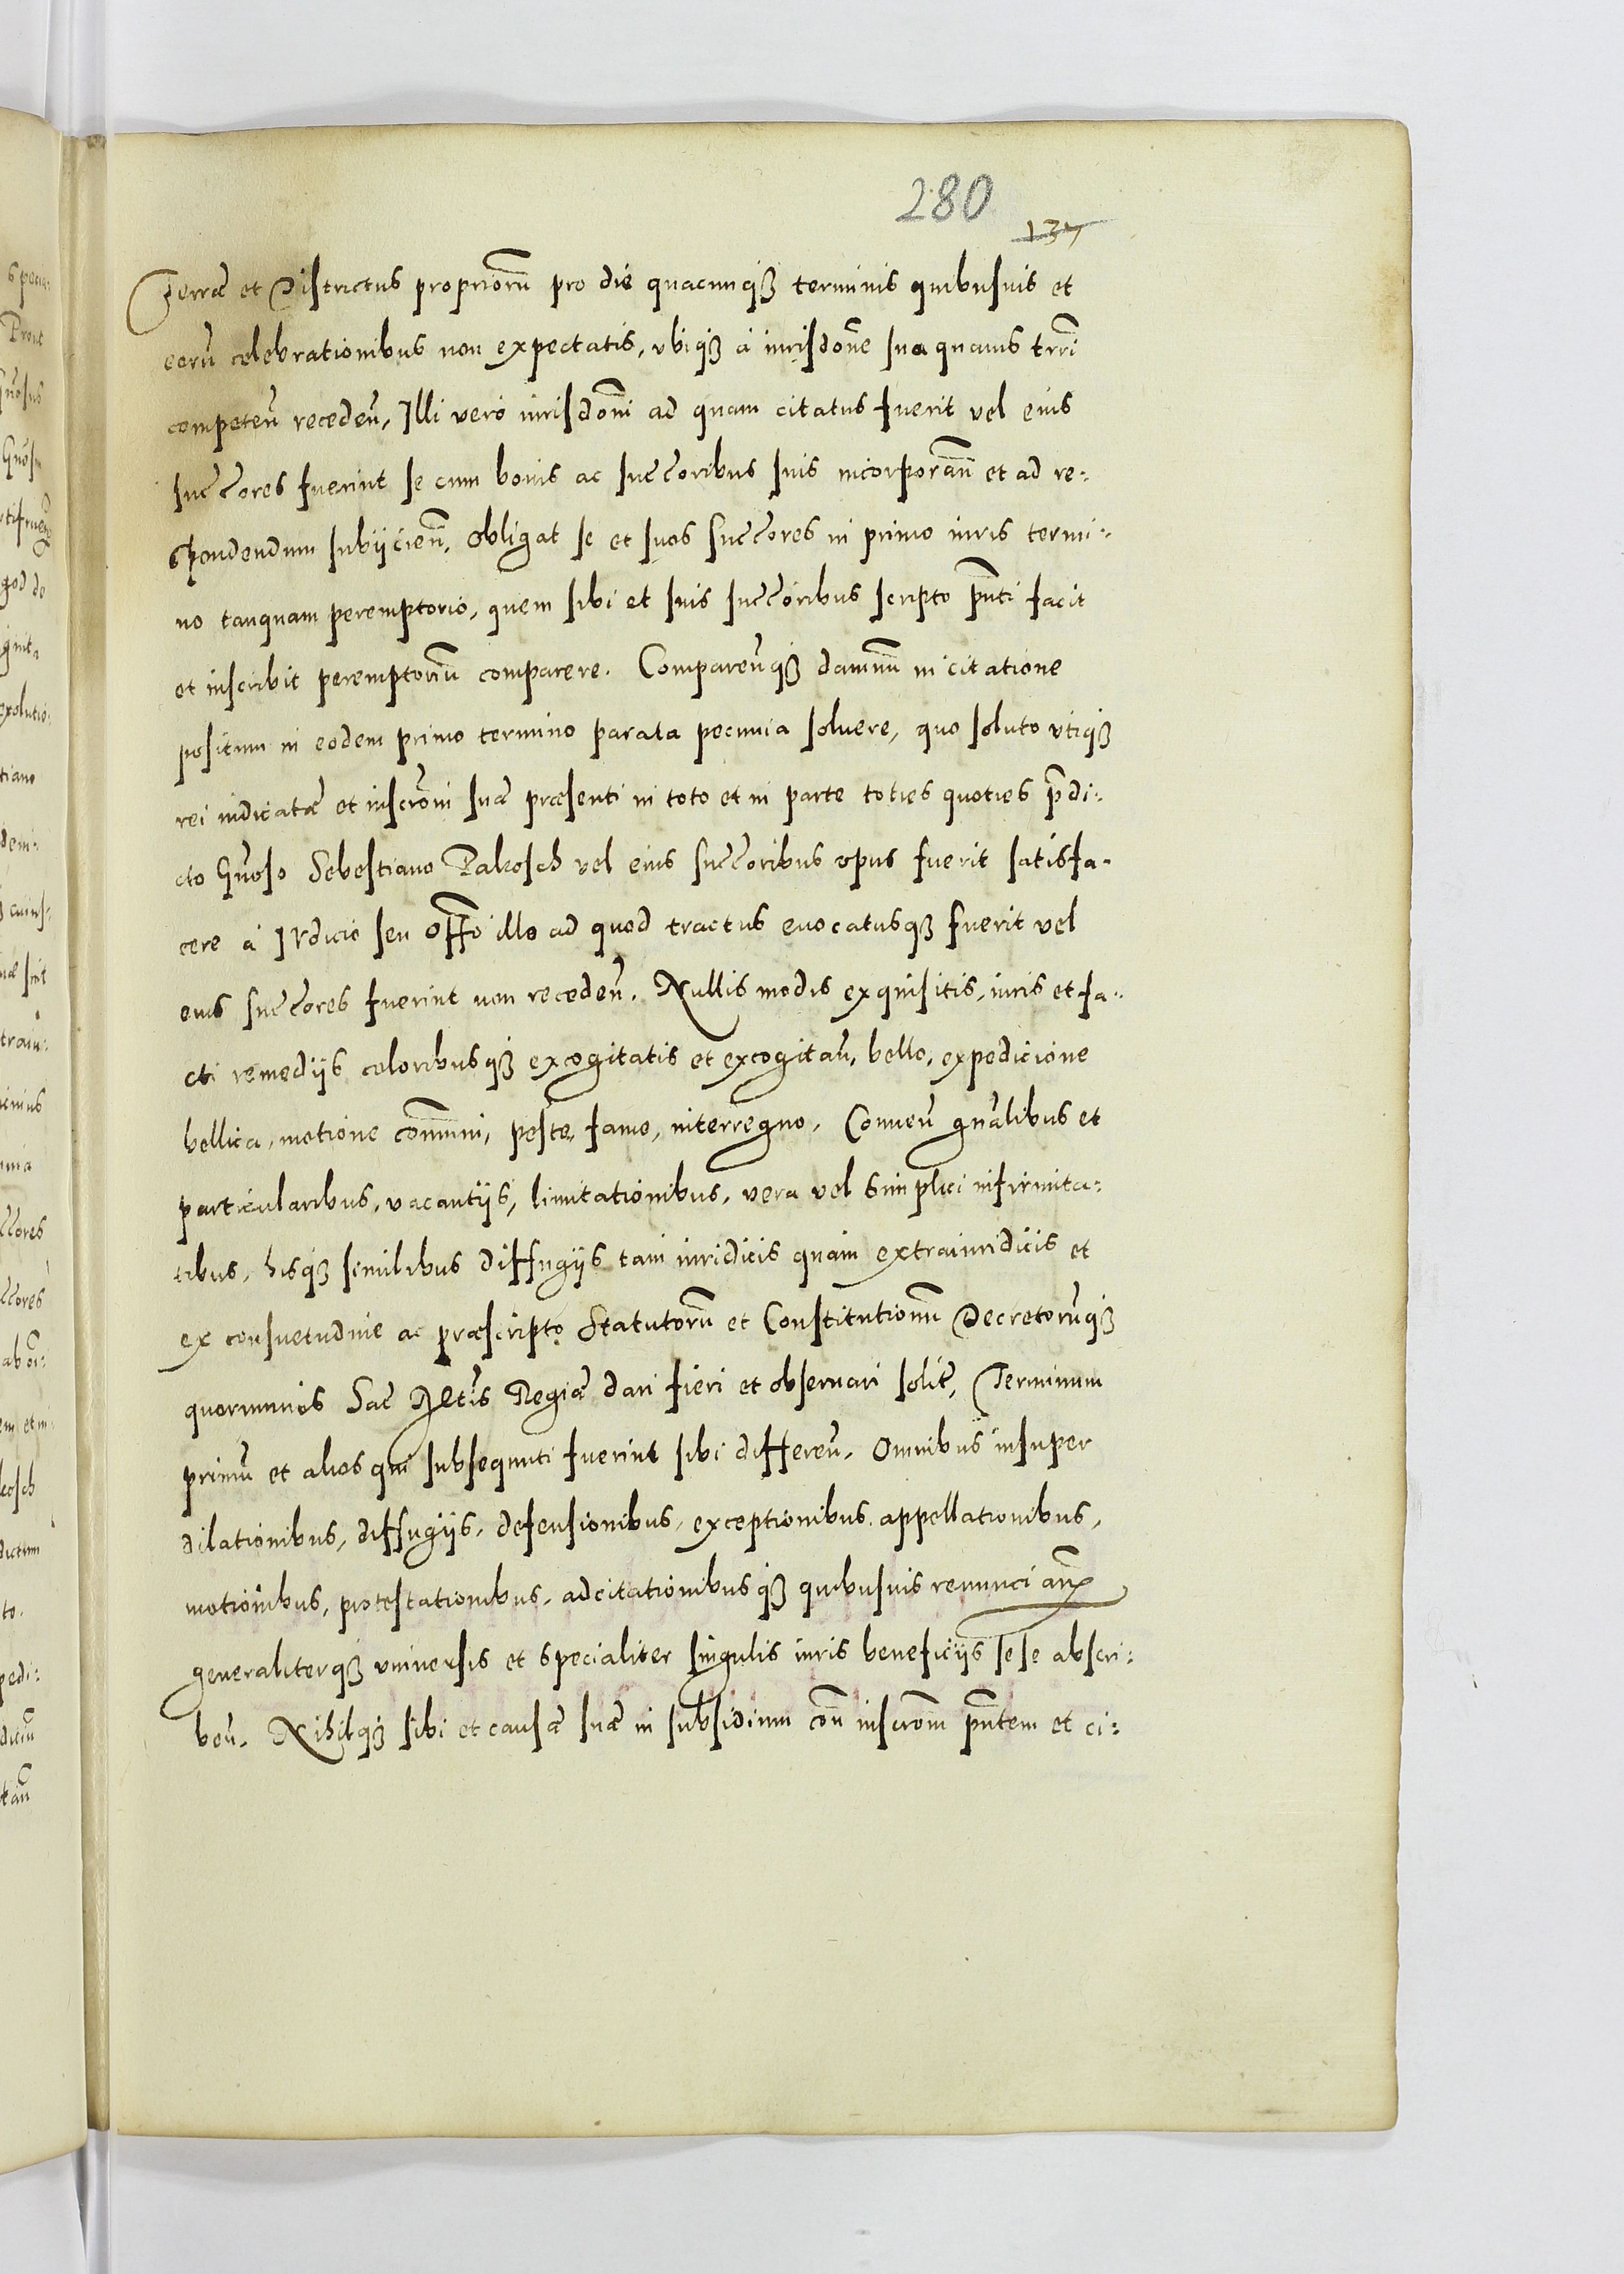 280
137
Terræ et Districtus propriorũ pro die quacunqȝ terminis quibusuis et
eorũ celebrationibus non expectatis, vbiqȝ à iurisdõne sua quauis trri
competeñ recedeñ, Illi verò iurisdõni ad quam citatus fuerit vel eius
succores fuerint se cum bonis ac succoribus suis incorporañ et ad re:
spondendum subijcieñ, obligat se et suos succores in primo iuris termi:
no tanquam peremptorio, quem sibi et suis succoribus scripto pñti facit
et inscribit peremptoriũ comparere. Compareñqȝ damnũ in citatione
positum in eodem primo termino parata pecunia soluere, quo soluto vtiqȝ
rei iudicatæ et inscrõni suæ præsenti in toto et in parte toties quoties p̃di:
cto Gñoso Sebestiano Pakosch vel eius succoribus opus fuerit satisfa:
cere à Iudicio seu offõ illo ad quod tractus euocatusqȝ fuerit vel
eius succores fuerint non recedeñ. Nullis modis exquisitis, iuris et fa:
cti remedijs coloribusqȝ excogitatis et excogitañ, bello, expedicione
bellica, motione cõmuni, peste, fame, interregno, Conueñ gñalibus et
particularibus, vacantijs, limitationibus, vera vel simplici infirmita:
tibus, hisqȝ similibus diffugijs tam iuridicis quàm extraiuridicis et
ex consuetudine ac præscripto Statutorũ et Constitutionũ Decretorũqȝ
quorumuis Sac Mtis Regiæ dari fieri et obseruari solit, Terminum
primũ et alios qui subsequuti fuerint sibi differeñ. Omnibus insuper
dilationibus, diffugijs, defensionibus, exceptionibus, appellationibus,
motionibus, protestationibus, adcitationibusqȝ quibusuis renunciañ
generaliterqȝ vniuersis et specialiter singulis iuris beneficijs sese abscri:
beñ. Nihilqȝ sibi et causæ suæ in subsidium coñ inscrõm pñtem et ei: